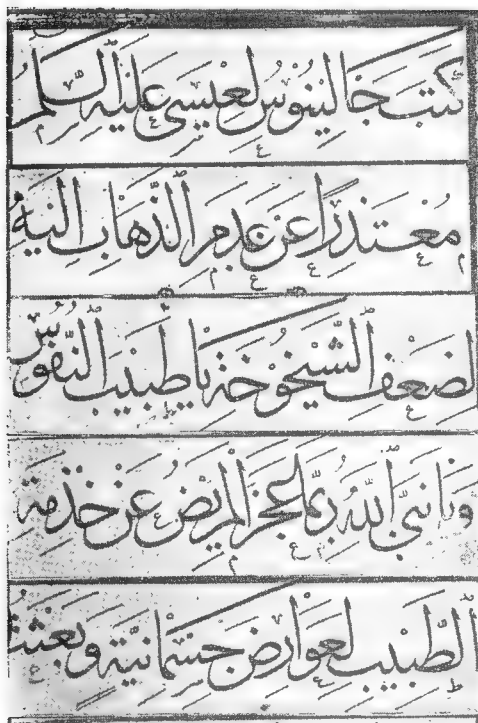 كَتَبَ جَالِينُوسُ لِعِيسَى عَلَيْهِ السَّلَمُ
مُعْتَذِرًا عَنْ عَدَمِ الذَّهَابِ إِلَيْهِ
لِضَعْفِ الشَّيْخُوخَةِ يَا طَبِيبَ النُّفُوسِ
وَيَا نَبِيَّ اللهِ رُبَّمَا عَجَزَ الْمَرِيضُ عَنْ خِدْمَةِ
الطَّبِيبِ لِعَوَارِضَ جِسْمَانِيَّةٍ وَبَعَثْتُ